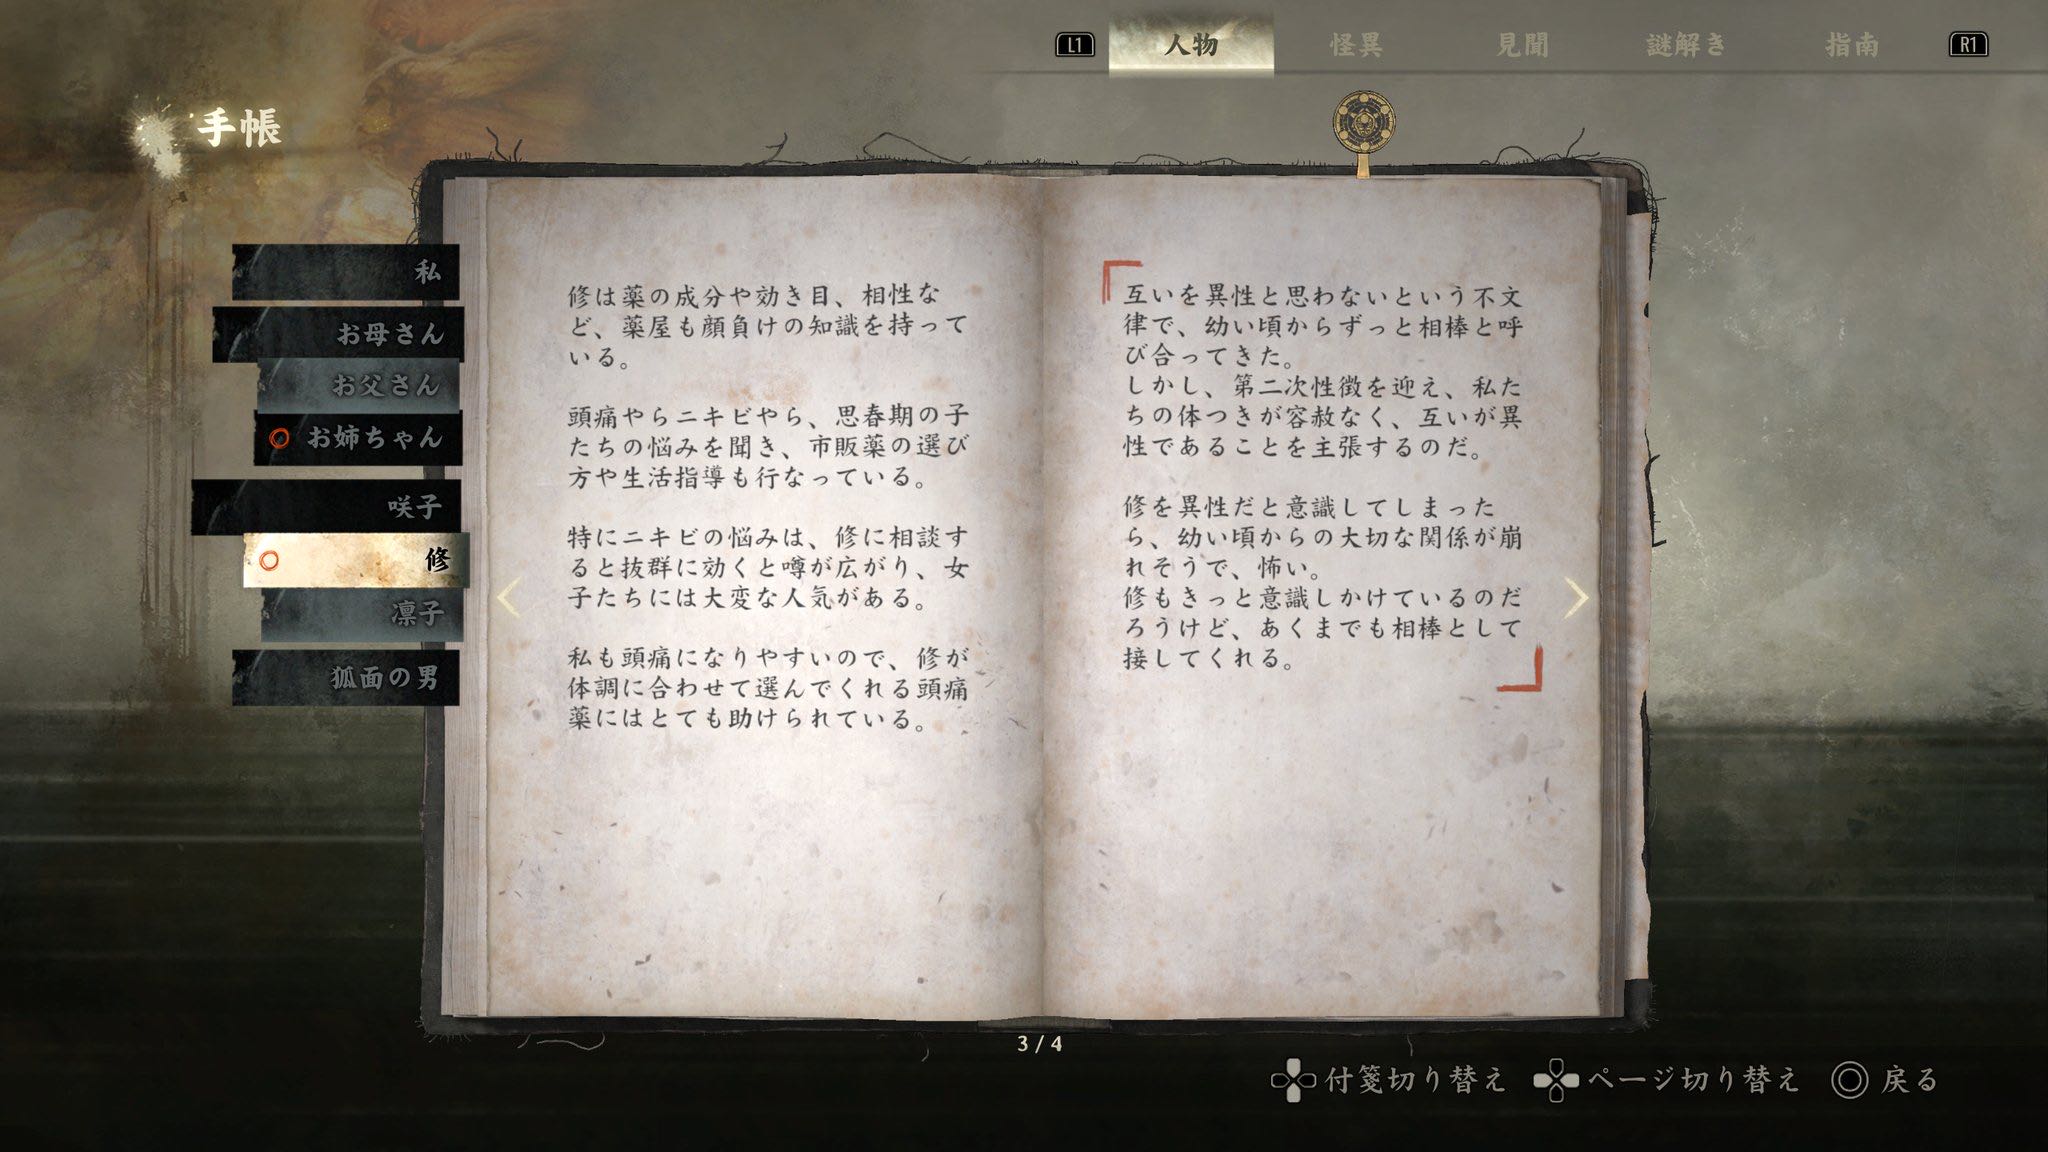 L1
人物
怪異
見聞
謎解き
指南
R1
手帳
私
お母さん
お父さん
お姉ちゃん
咲子
修
凛子
狐面の男
修は薬の成分や効き目、相性な
ど、薬屋も顔負けの知識を持って
いる。
頭痛やらニキビやら、思春期の子
たちの悩みを聞き、市販薬の選び
方や生活指導も行なっている。
特にニキビの悩みは、修に相談す
ると抜群に効くと噂が広がり、女
子たちには大変な人気がある。
私も頭痛になりやすいので、修が
体調に合わせて選んでくれる頭痛
薬にはとても助けられている。
互いを異性と思わないという不文
律で、幼い頃からずっと相棒と呼
び合ってきた。
しかし、第二次性徴を迎え、私た
ちの体つきが容赦なく、互いが異
性であることを主張するのだ。
修を異性だと意識してしまった
ら、幼い頃からの大切な関係が崩
れそうで、怖い。
修もきっと意識しかけているのだ
ろうけど、あくまでも相棒として
接してくれる。
3/4
付箋切り替え
ページ切り替え
戻る